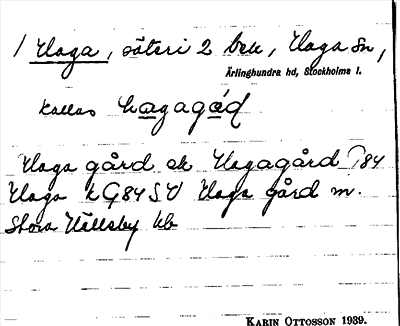 1 Haga, säteri 2 bel., Haga sn,
Ärlinghundra hd, Stockholms l.
kallas hagagåd
Haga gård ek Hagagård T84
Haga kG84SV Haga gård m.
Stora Wällsby hb
KARIN OTTOSSON 1939.